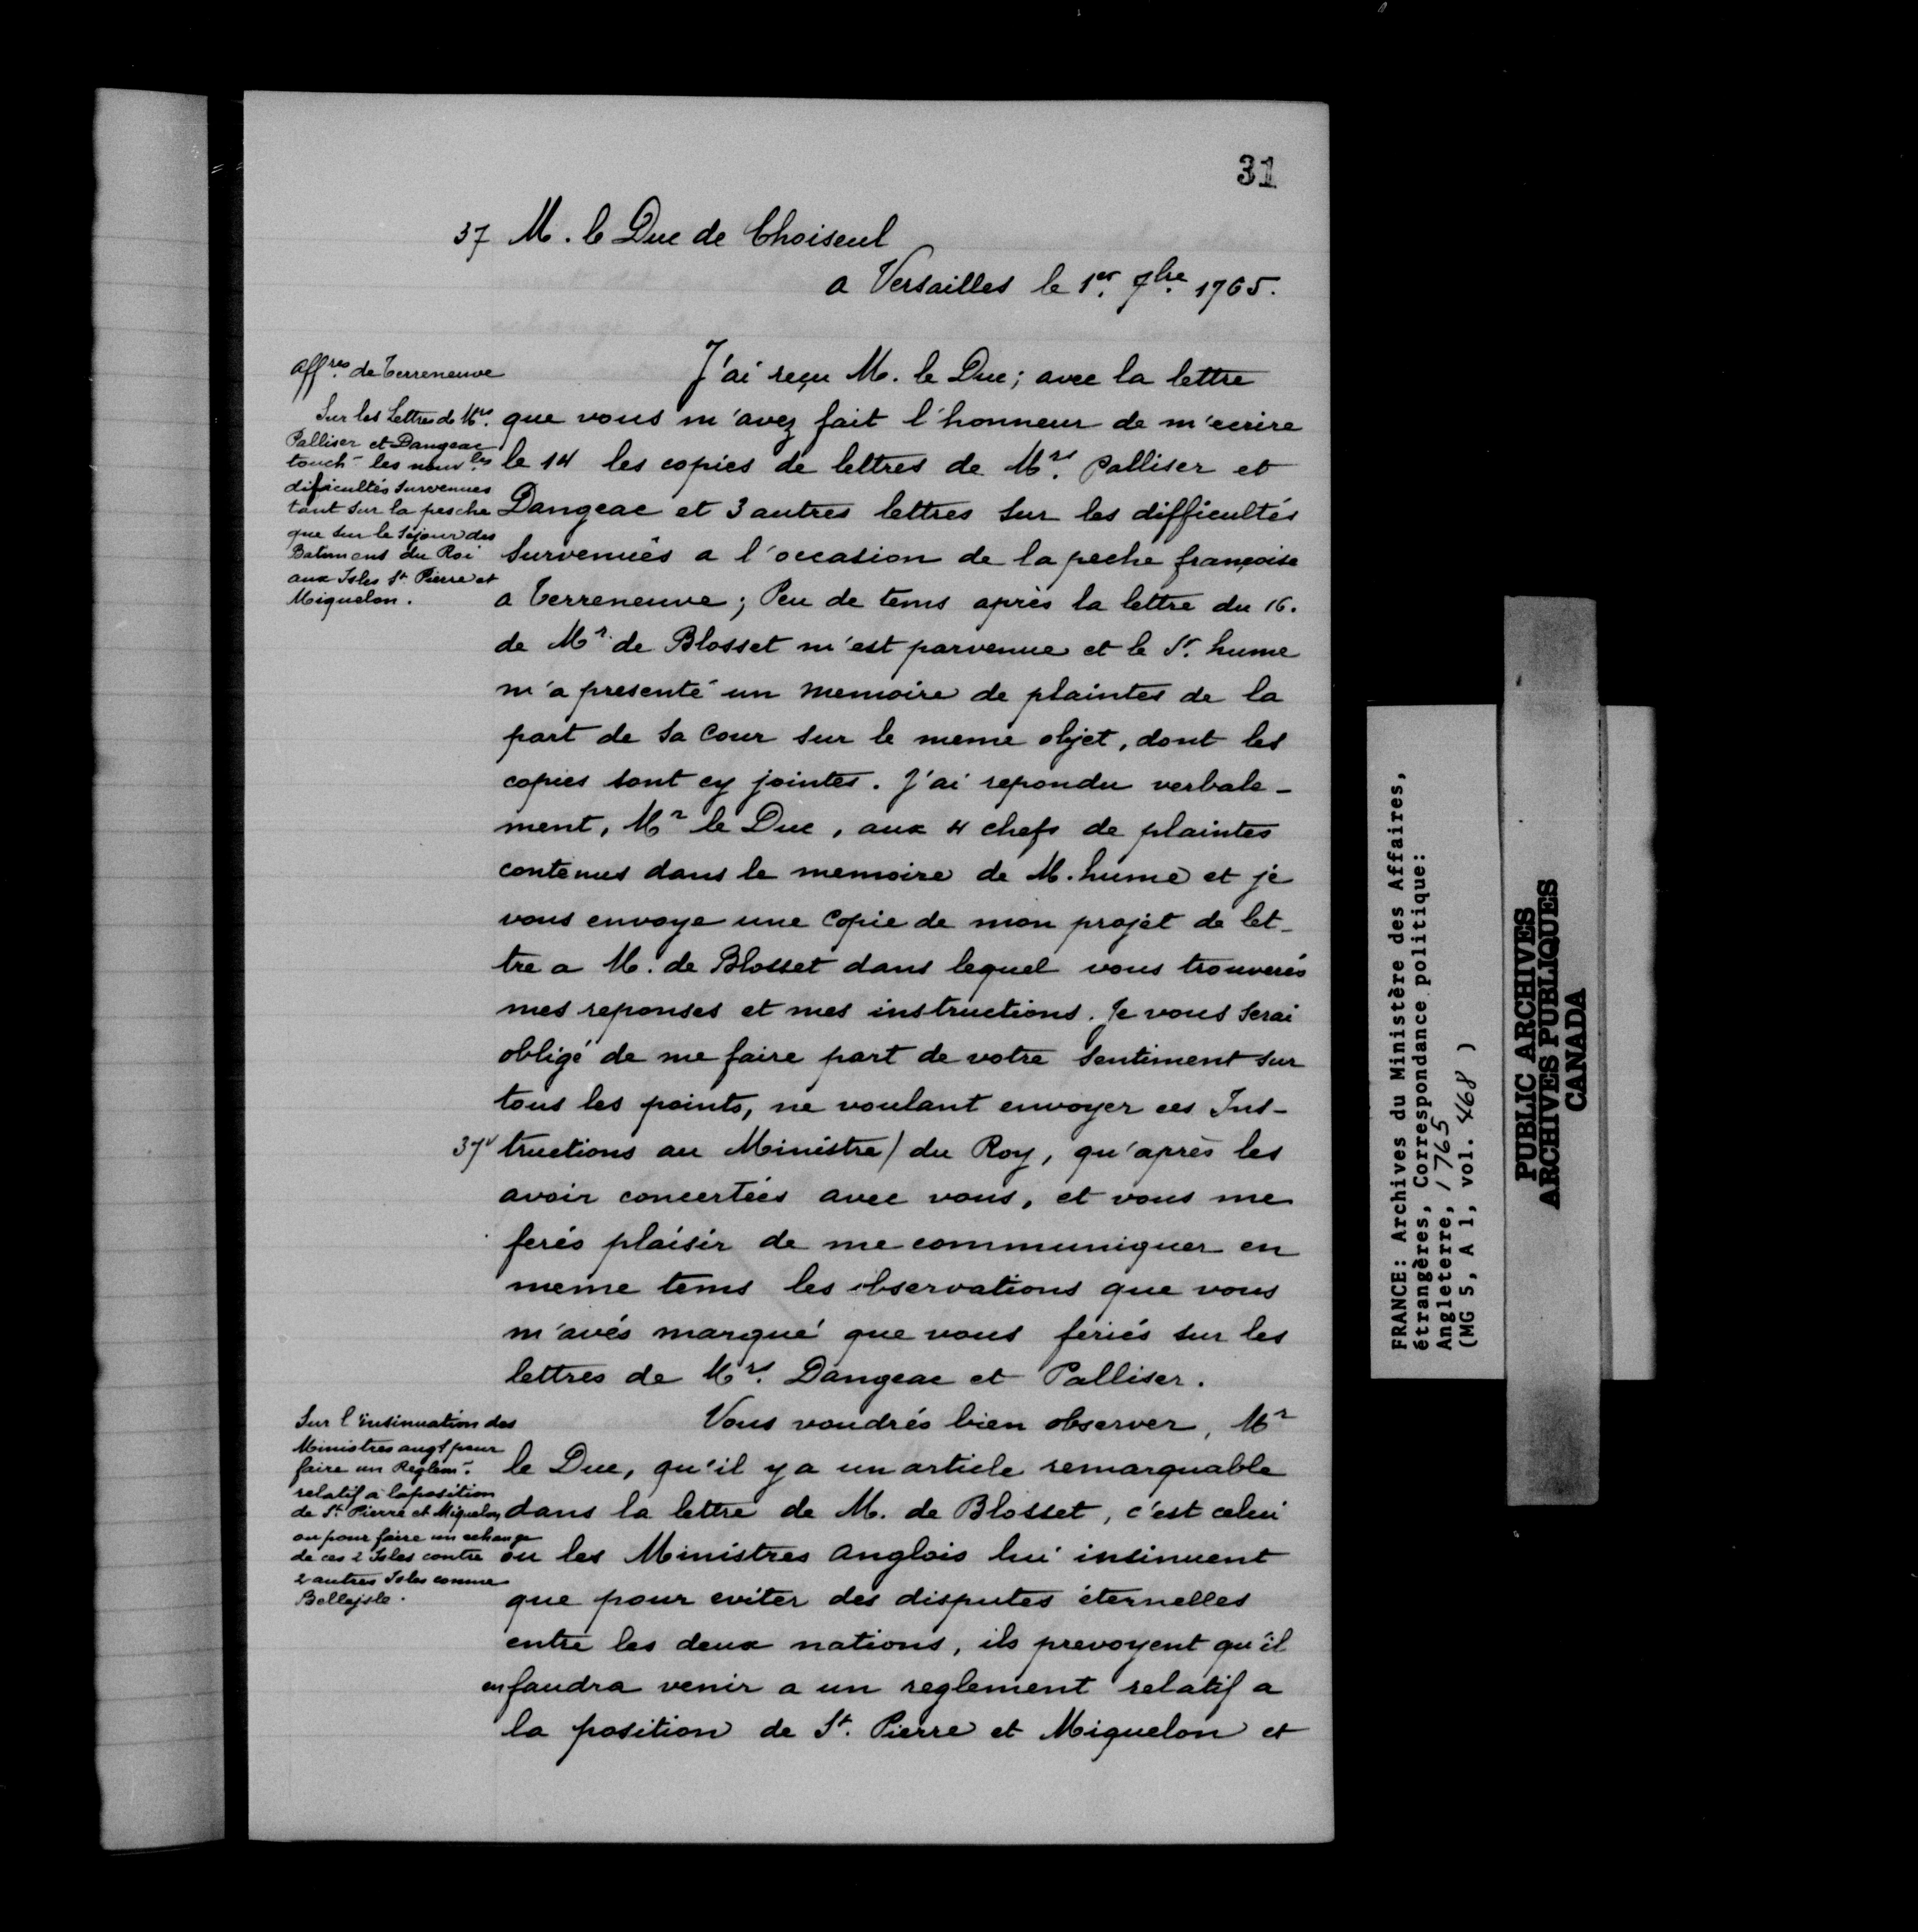 31
37 M. le Duc de Choiseul
a Versailles le 1er. 7bre. 1765.
Affres. de Terreneuve
Sur les Lettres de Mrs.
Palliser et Dangeac
touch- les nouvles
dificultés survenues
tant sur la pesche
que sur le Séjour des
Batimens du Roi
aux Isles St Pierre et
Miquelon.
J'ai reçu M. le Duc; avec la lettre
que vous m'avez fait l'honneur de m'ecrire
le 14 les copies de lettres de Mrs. Palliser et
Dangeac et 3 autres lettres sur les difficultés
survenuës a l'occasion de la peche françoise
a Terreneuve; Peu de tems après la lettre du 16.
de Mr. de Blosset m'est parvenue et le Sr. hume
m'a presenté un memoire de plaintes de la
part de sa Cour sur le meme objet, dont les
copies sont cy jointes. J'ai repondu verbale-
ment, Mr le Duc, aux 4 chefs de plaintes
contenus dans le memoire de M. hume et je
vous envoye une Copie de mon projet de let-
tre a M. de Blosset dans lequel vous trouverés
mes reponses et mes instructions. Je vous serai
obligé de me faire part de votre sentiment sur
tous les points, ne voulant envoyer ces Ins-
37v tructions au Ministre/ du Roy, qu'après les
avoir concertées avec vous, et vous me
ferés plaisir de me communiquer en
meme tems les observations que vous
m'avés marqué que vous feriés sur les
lettres de Mrs. Dangeac et Palliser.
Sur l'insinuation des
Ministres angs pour
faire un Reglemt.
relatif à la position
de St. Pierre et Miquelon
ou pour faire un echange
de ces 2 Isles contre
2 autres Isles comme
Bellejsle.
Vous voudrés bien observer, Mr
le Duc, qu'il y a un article remarquable
dans la lettre de M. de Blosset, c'est celui
ou les Ministres Anglois lui insinuent
que pour eviter des disputes éternelles
entre les deux nations, ils prevoyent qu'il
en faudra venir a un reglement relatif a
la position de St. Pierre et Miquelon et
FRANCE: Archives du Ministère des Affaires,
étrangères, Correspondance politique:
Angleterre, 1765
(MG 5, A 1, vol. 468 )
PUBLIC ARCHIVES
ARCHIVES PUBLIQUES
CANADA